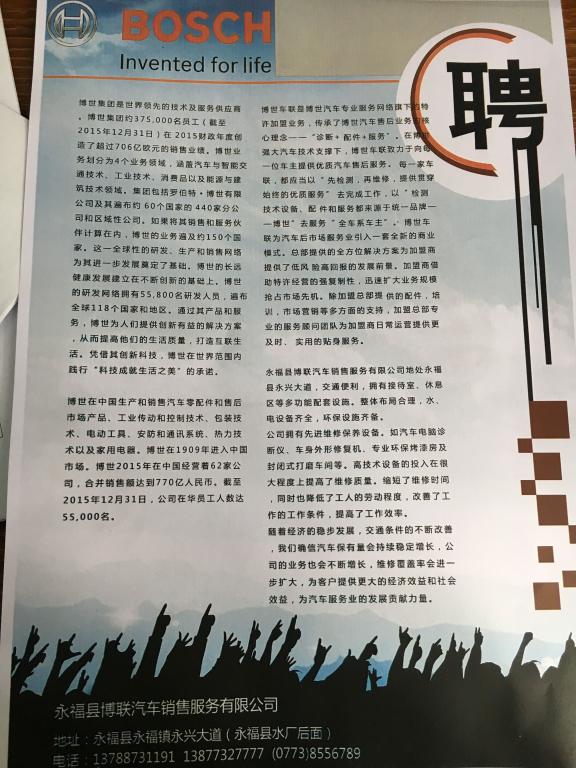 BOSCH
Invented for life
聘
博世集团是世界领先的技术及服务供应商
。博世集团约375,000名员工（截至
2015年12月31日）在 2015财政年度创
造了超过706亿欧元的销售业绩。博世业
务划分为4个业务领域，涵盖汽车与智能交
通技术、工业技术、消费品以及能源与建
筑技术领域。集团包括罗伯特·博世有限
公司及其遍布约 60个国家的 440家分公
司和区域性公司。如果将其销售和服务伙
伴计算在内，博世的业务遍及约150个国
家。这一全球性的研发、生产和销售网络
为其进一步发展奠定了基础。博世的长远
健康发展建立在不断创新的基础上。博世
的研发网络拥有55,800名研发人员，遍布
全球118个国家和地区。通过其产品和服
务，博世为人们提供创新有益的解决方案
，从而提高他们的生活质量，打造互联生
活。凭借其创新科技，博世在世界范围内
践行“科技成就生活之美”的承诺。
博世在中国生产和销售汽车零配件和售后
市场产品、工业传动和控制技术、包装技
术、电动工具、安防和通讯系统、热力技
术以及家用电器。博世在1909年进入中国
市场。博世2015年在中国经营着62家公
司，合并销售额达到770亿人民币。截至
2015年12月31日，公司在华员工人数达
55,000名。
博世车联是博世汽车专业服务网络旗下的特
许加盟业务，传承了博世汽车售后业务的核
心理念——“诊断+ 配件+服务”。在博世
强大汽车技术支撑下，博世车联致力于向每
一位车主提供优质汽车售后服务。每一家车
联，都应当以“先检测，再维修，提供贯穿
始终的优质服务”去完成工作，以“检测
技术设备、配 件和服务都来源于统一品牌—
—博世”去服务“全车系车主”。博世车
联为汽车后市场服务业引入一套全新的商业
模式。总部提供的全方位解决方案为加盟商
提供了低风 险高回报的发展前景。加盟商借
助特许经营的强复制性，迅速扩大业务规模
抢占市场先机。除加盟总部提 供的配件，培
训，市场营销等多方面的支持，加盟总部专
业的服务顾问团队为加盟商日常运营提供更
及时、 实用的贴身服务。
永福县博联汽车销售服务有限公司地处永福
县永兴大道，交通便利，拥有接待室、休息
区等多功能配套设施。整体布局合理，水、
电设备齐全，环保设施齐备。
公司拥有先进维修保养设备。如汽车电脑诊
断仪、车身外形修复机、专业环保烤漆房及
封闭式打磨车间等。高技术设备的投入在很
大程度上提高了维修质量。缩短了维修时间
，同时也降低了工人的劳动程度，改善了工
作的工作条件，提高了工作效率。
随着经济的稳步发展，交通条件的不断改善
，我们确信汽车保有量会持续稳定增长，公
司的业务也会不断增长，维修覆盖率会进一
步扩大，为客户提供更大的经济效益和社会
效益，为汽车服务业的发展贡献力量。
永福县博联汽车销售服务有限公司
地址：永福县永福镇永兴大道（永福县水厂后面）
电话：13788731191 13877327777 (0773)8556789